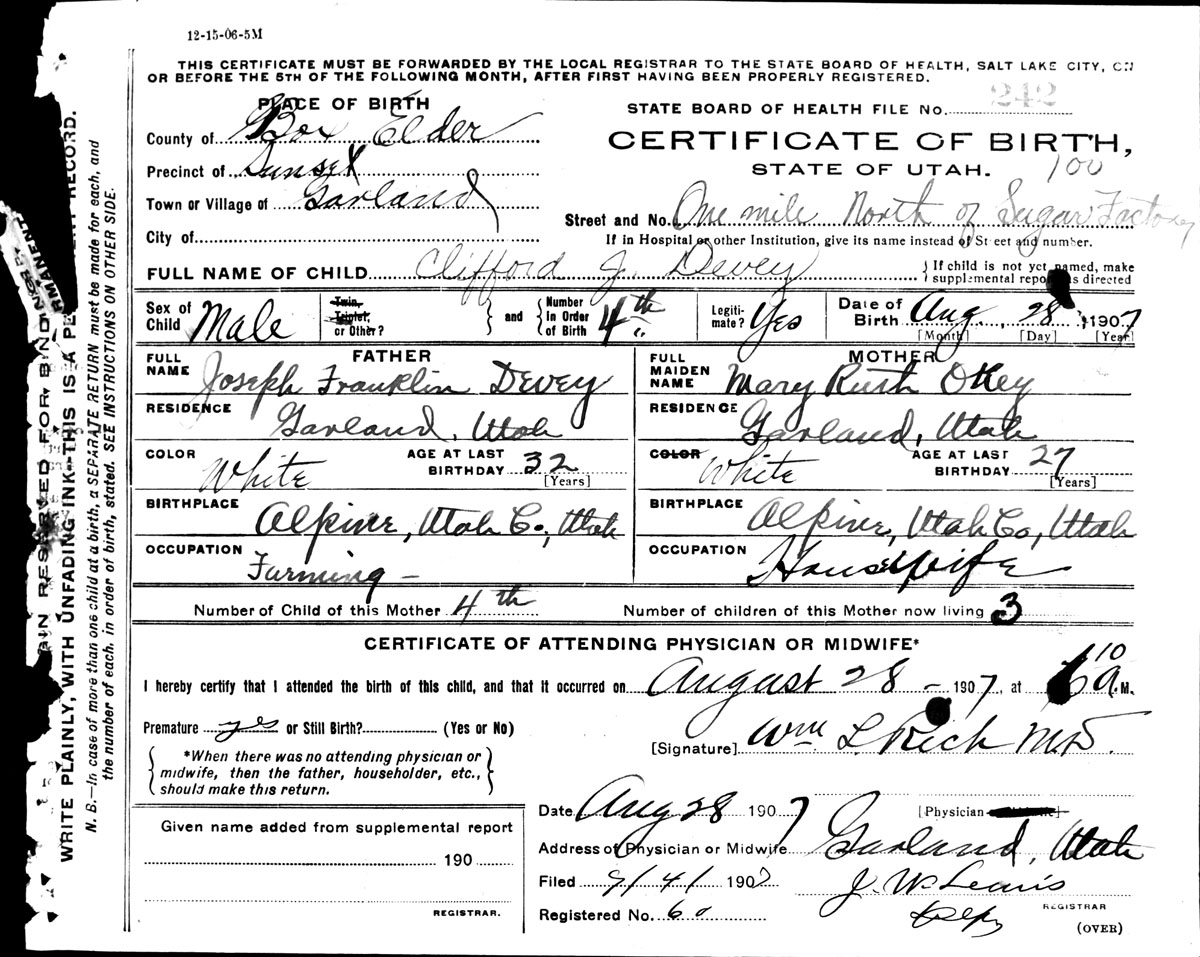 12-15-06-5M
THIS CERTIFICATE MUST BE FORWARDED BY THE LOCAL REGISTRAR TO THE STATE BOARD OF HEALTH, SALT LAKE CITY, ON
OR BEFORE THE 5TH OF THE FOLLOWING MONTH, AFTER FIRST HAVING BEEN PROPERLY REGISTERED.
PLACE OF BIRTH
County of Box Elder
Precinct of Sunset
Town or Village of Garland
City of
STATE BOARD OF HEALTH FILE No. 242
CERTIFICATE OF BIRTH,
STATE OF UTAH. 100
Street and No. One mile North of Sugar Factory
If in Hospital or other Institution, give its name instead of Street and number.
FULL NAME OF CHILD Clifford J. Devey
If child is not yet named, make
supplemental report as directed
Sex of Child Male
Twin, Triplet, or Other?
and
Number In Order of Birth 4th
Legitimate? Yes
Date of Birth Aug, 28, 1907
[Month] [Day] [Year]
FATHER
FULL NAME Joseph Franklin Devey
RESIDENCE Garland, Utah
COLOR White AGE AT LAST BIRTHDAY 32
[Years]
BIRTHPLACE Alpine, Utah Co, Utah
OCCUPATION Farming -
MOTHER
FULL MAIDEN NAME Mary Ruth Okey
RESIDENCE Garland, Utah
COLOR White AGE AT LAST BIRTHDAY 27
[Years]
BIRTHPLACE Alpine, Utah Co, Utah
OCCUPATION Housewife
Number of Child of this Mother 4th Number of children of this Mother now living 3
CERTIFICATE OF ATTENDING PHYSICIAN OR MIDWIFE*
I hereby certify that I attended the birth of this child, and that it occurred on August 28 - 1907, at 6 10 a.M.
Premature yes or Still Birth? (Yes or No)
[Signature] Wm L Rich M.D.
*When there was no attending physician or
midwife, then the father, householder, etc.,
should make this return.
Given name added from supplemental report
190
REGISTRAR.
Date Aug 28 1907 [Physician
Address of Physician or Midwife Garland, Utah
Filed 9/4/ 1907 J. W. Lewis
REGISTRAR
Registered No. 60
(OVER)
WRITE PLAINLY, WITH UNFADING INK-THIS IS A PERMANENT RECORD.
N. B.—In case of more than one child at a birth, a SEPARATE RETURN must be made for each, and
the number of each, in order of birth, stated. SEE INSTRUCTIONS ON OTHER SIDE.